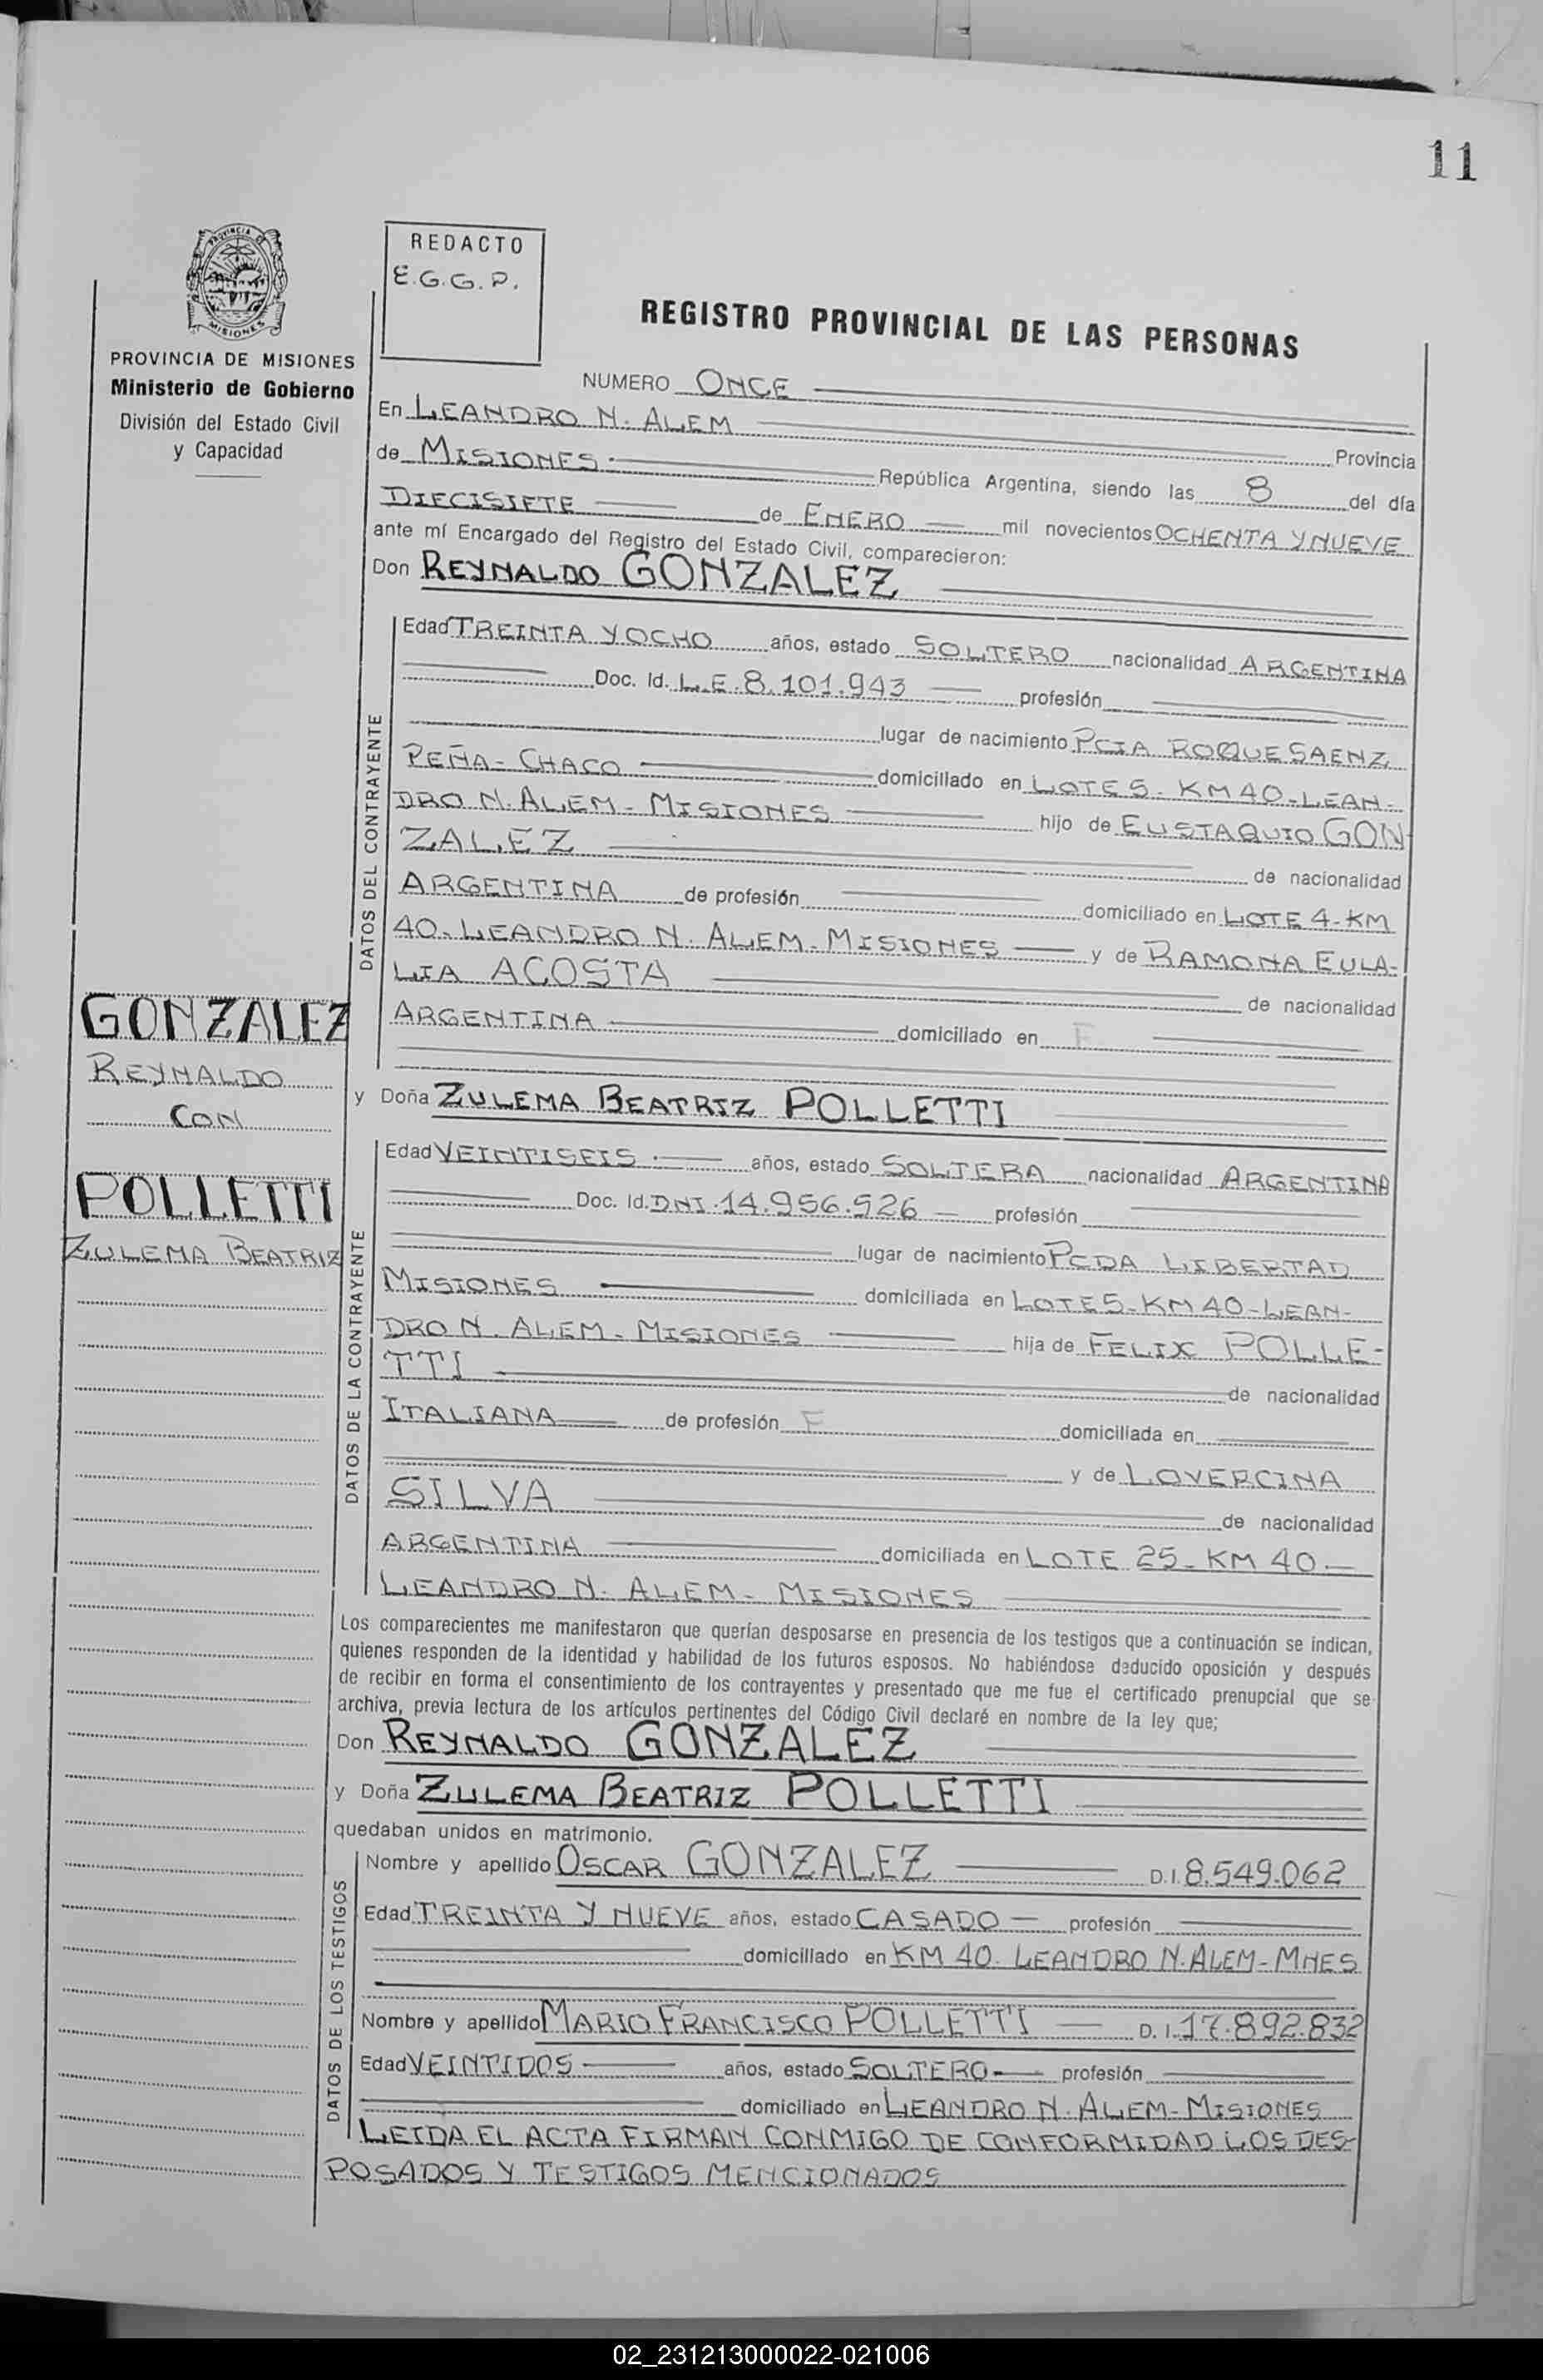 11
REDACTO
E.G.G.P.
PROVINCIA DE MISIONES
PROVINCIA DE MISIONES
Ministerio de Gobierno
División del Estado Civil
y Capacidad
REGISTRO PROVINCIAL DE LAS PERSONAS
NUMERO ONCE
En LEANDRO N. ALEM Provincia
de MISIONES República Argentina, siendo las 8 del día
DIECISIETE de ENERO mil novecientos OCHENTA Y NUEVE
ante mí Encargado del Registro del Estado Civil, comparecieron:
Don REYNALDO GONZALEZ
DATOS DEL CONTRAYENTE
Edad TREINTA Y OCHO años, estado SOLTERO nacionalidad ARGENTINA
Doc. Id. L.E. 8.101.943 profesión
lugar de nacimiento PCIA ROQUE SAENZ
PEÑA - CHACO domiciliado en LOTE 5 - KM 40 - LEAN-
DRO N. ALEM - MISIONES hijo de EUSTAQUIO GON
ZALEZ de nacionalidad
ARGENTINA de profesión domiciliado en LOTE 4 - KM
40 - LEANDRO N. ALEM - MISIONES y de RAMONA EULA-
LIA ACOSTA de nacionalidad
ARGENTINA domiciliado en F
GONZALEZ
REYNALDO
CON
POLLETTI
ZULEMA BEATRIZ
y Doña ZULEMA BEATRIZ POLLETTI
DATOS DE LA CONTRAYENTE
Edad VEINTISEIS años, estado SOLTERA nacionalidad ARGENTINA
Doc. Id. DNI. 14.956.926 profesión
lugar de nacimiento PCDA LIBERTAD
MISIONES domiciliada en LOTE 5 - KM 40 - LEAN-
DRO N. ALEM - MISIONES hija de FELIX POLLE-
TTI de nacionalidad
ITALIANA de profesión F domiciliada en
y de LOVERCINA
SILVA de nacionalidad
ARGENTINA domiciliada en LOTE 25 - KM 40 -
LEANDRO N. ALEM - MISIONES
Los comparecientes me manifestaron que querían desposarse en presencia de los testigos que a continuación se indican,
quienes responden de la identidad y habilidad de los futuros esposos. No habiéndose deducido oposición y después
de recibir en forma el consentimiento de los contrayentes y presentado que me fue el certificado prenupcial que se
archiva, previa lectura de los artículos pertinentes del Código Civil declaré en nombre de la ley que;
Don REYNALDO GONZALEZ
y Doña ZULEMA BEATRIZ POLLETTI
quedaban unidos en matrimonio.
DATOS DE LOS TESTIGOS
Nombre y apellido OSCAR GONZALEZ D.I. 8.549.062
Edad TREINTA Y NUEVE años, estado CASADO profesión
domiciliado en KM 40. LEANDRO N. ALEM - MNES
Nombre y apellido MARIO FRANCISCO POLLETTI D.I. 17.892.832
Edad VEINTIDOS años, estado SOLTERO profesión
domiciliado en LEANDRO N. ALEM - MISIONES
LEIDA EL ACTA FIRMAN CONMIGO DE CONFORMIDAD LOS DES-
POSADOS Y TESTIGOS MENCIONADOS
02_231213000022-021006